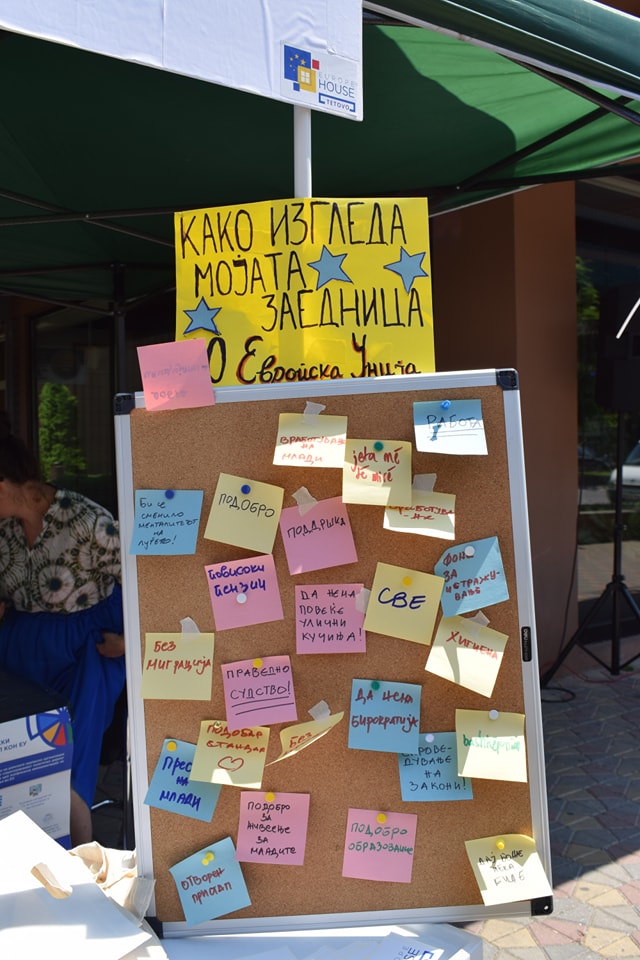 EUROPE
HOUSE
TETOVO
КАКО ИЗГЛЕДА
МОЈАТА
ЗАЕДНИЦА
ВО Европска Унија
РАБОТА
ВРАБОТУВАЊЕ
НА
МЛАДИ
jeta më
të mirë
БИ СЕ
СМЕНИЛО
МЕНТАЛИТЕТОТ
НА
ЛУЃЕТО!
ПОДОБРО
ПОДДРШКА
ФОНД
ЗА
ИСТРАЖУ-
ВАЊЕ
ПОВИСОКИ
ПЕНЗИИ
ДА НЕМА
ПОВЕЌЕ
УЛИЧНИ
КУЧИЊА!
СВЕ
ХИГИЕНА
БЕЗ
МИГРАЦИЈА
ПРАВЕДНО
СУДСТВО!
ДА НЕМА
БИРОКРАТИЈА
ПОДОБАР
СТАНДАР
БЕЗ
СПРОВЕ-
ДУВАЊЕ
НА
ЗАКОНИ!
НА
МЛАДИ
ПОДОБРО
ЗА
ЖИВЕЕЊЕ
ЗА
МЛАДИТЕ
ПОДОБРО
ОБРАЗОВАНИЕ
ОТВОРЕН
ПРИСТАП
БИДЕ
КОН ЕУ